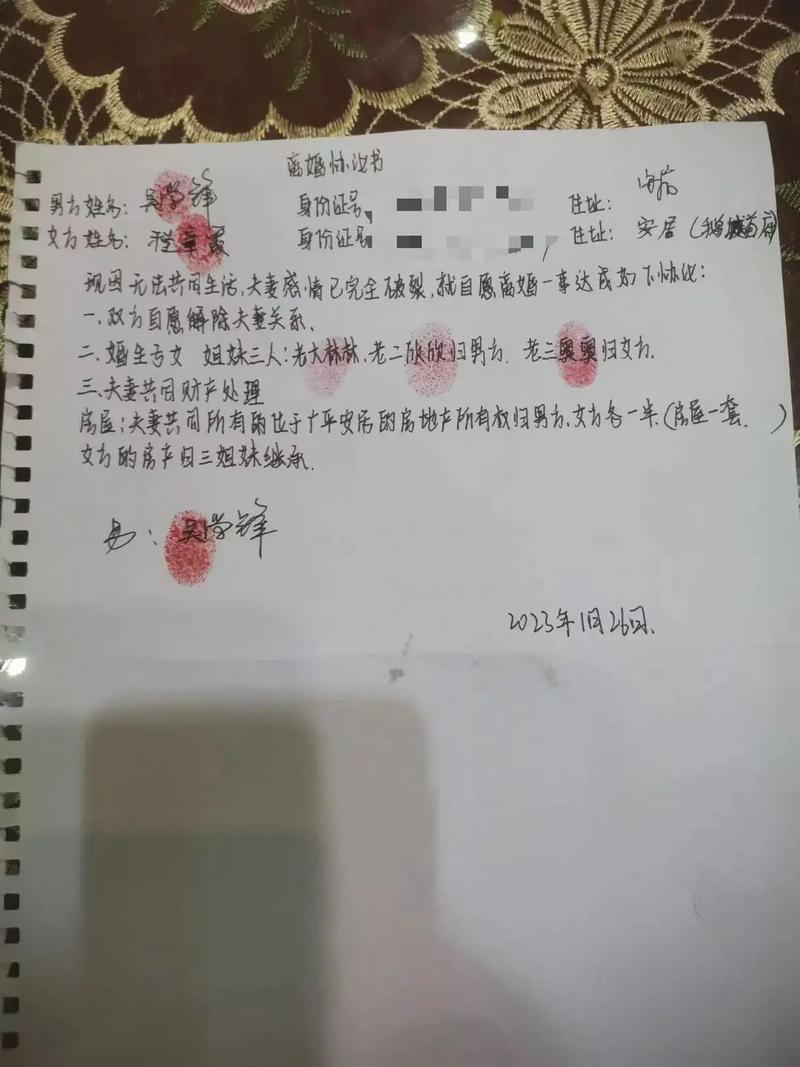 离婚协议书
男方姓名: 吴学锋 身份证号, 住址:
女方姓名: 程章 身份证号, 住址: 安居 (
现因无法共同生活,夫妻感情已完全破裂,就自愿离婚一事达成如下协议:
一、双方自愿解除夫妻关系、
二、婚生子女 姐妹三人:老大林林、老二欣欣归男方、老三奥奥归女方、
三、夫妻共同财产处理
房屋:夫妻共同所有的位于广平安居的房地产所有权归男方、女方各一半、(房屋一套、 )
女方的房产归三姐妹继承、
男: 吴学锋
2023年1月26日、